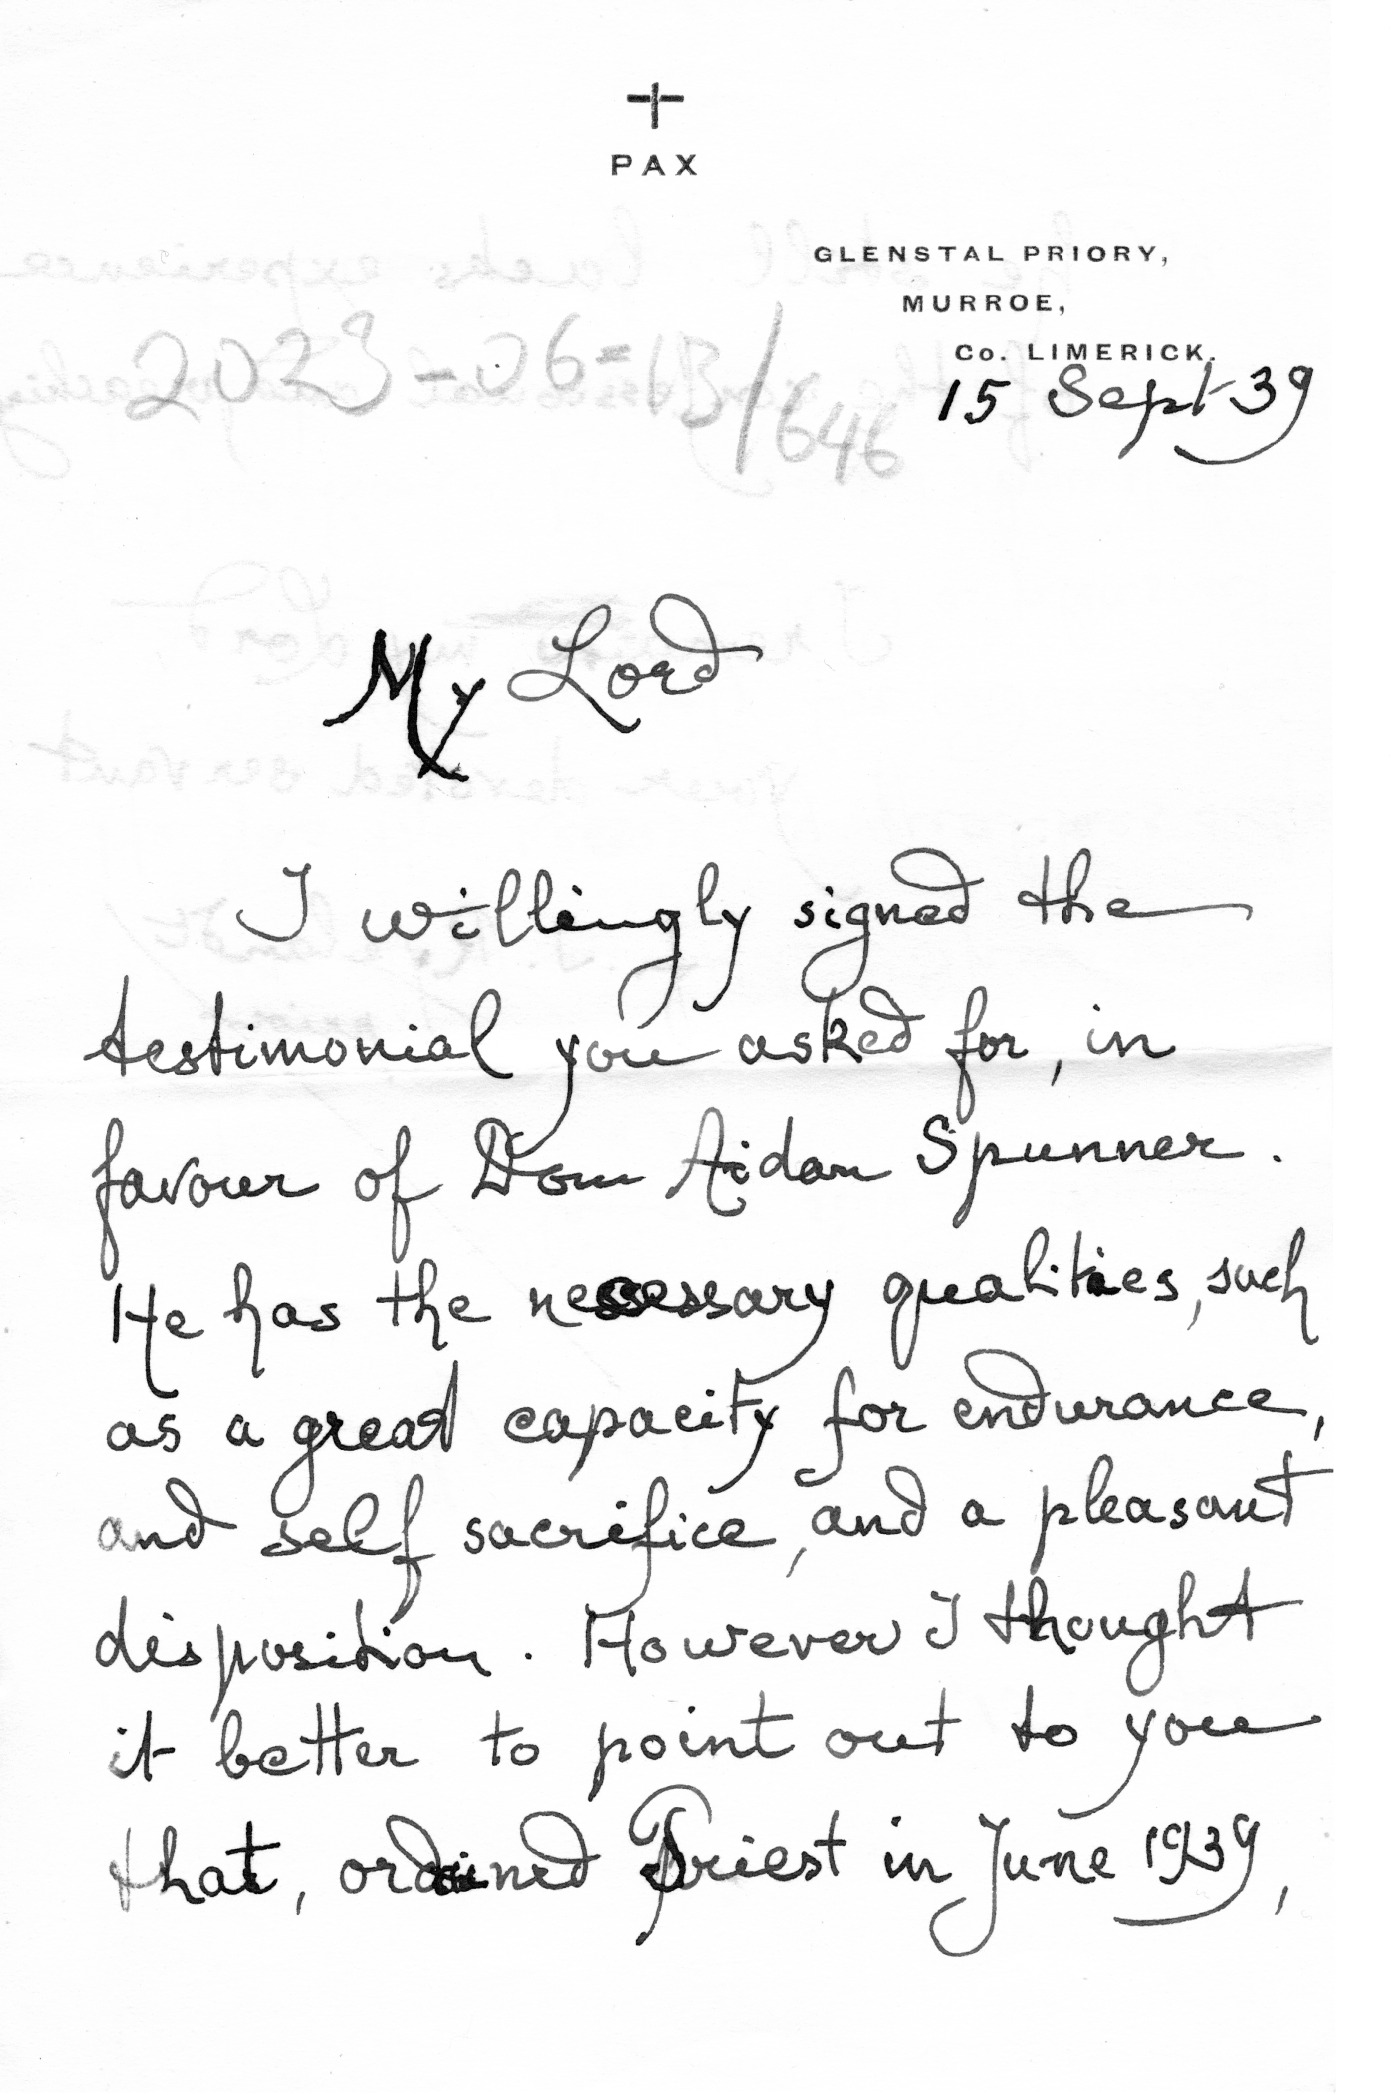 PAX
GLENSTAL PRIORY,
MURROE,
Co. LIMERICK.
15 Sept 39
2023-06-13/646
My Lord
I willingly signed the
testimonial you asked for, in
favour of Dom Aidan Spunner.
He has the necessary qualities, such
as a great capacity for endurance,
and self sacrifice, and a pleasant
disposition. However I thought
it better to point out to you
that, ordained Priest in June 1939,